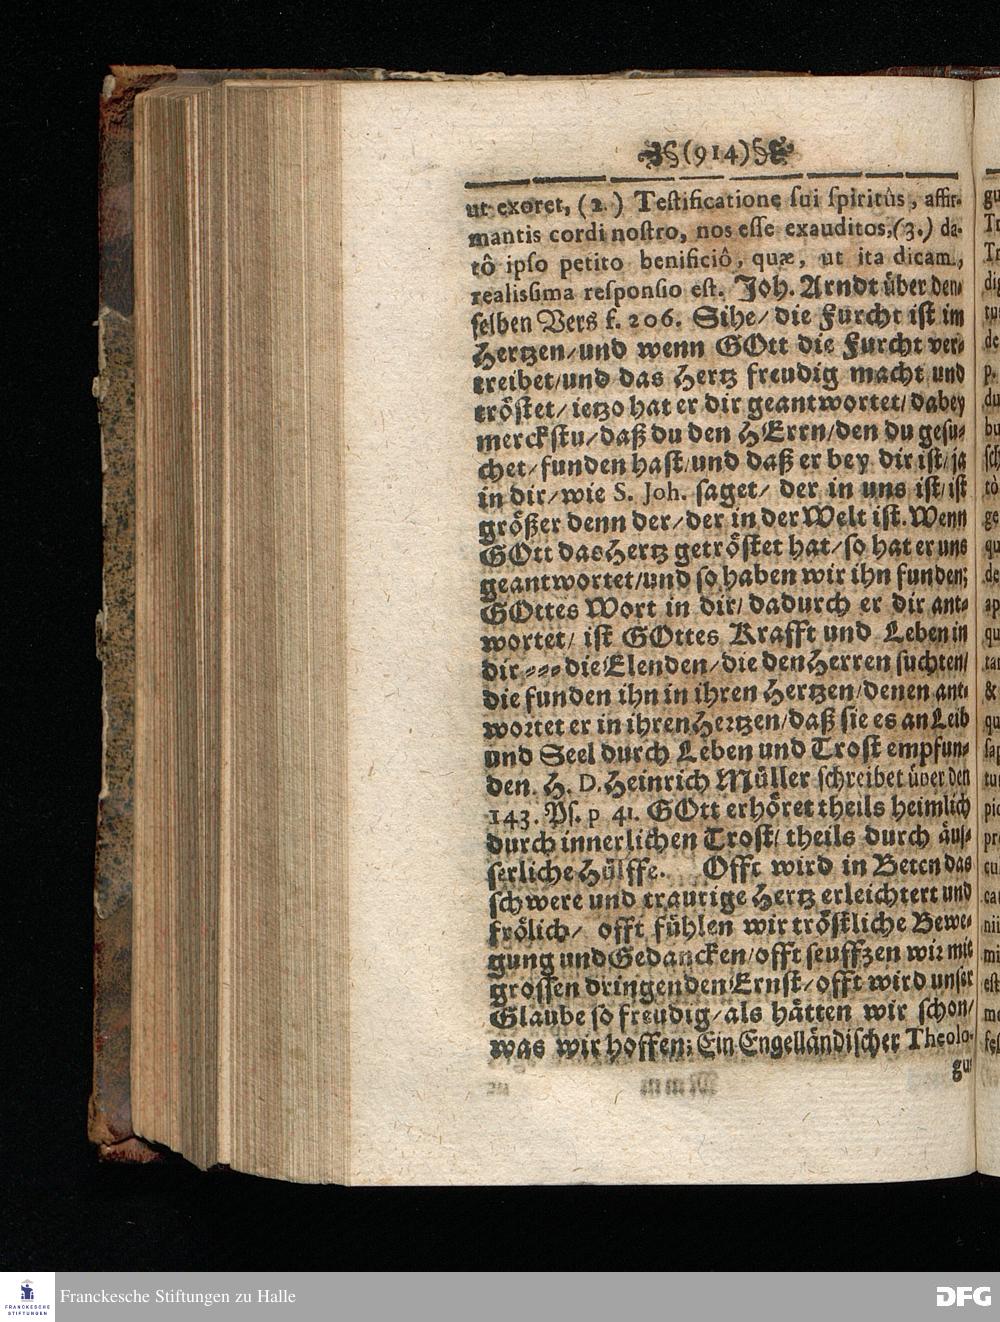 §(914)§
ut exoret, (2.) Testificatione sui spiritûs, affir-
mantis cordi nostro, nos esse exauditos,(3.) da-
tô ipso petito benificiô, quæ, ut ita dicam,
realissima responsio est. Joh. Arndt über den-
selben Vers f. 206. Sihe/ die Furcht ist im
Hertzen/und wenn GOtt die Furcht ver-
treibet/und das Hertz freudig macht und
tröstet/ ietzo hat er dir geantwortet/ dabey
merckstu/ daß du den HErrn/den du gesu-
chet/funden hast/und daß er bey dir ist/ ja
in dir/wie S. Joh. saget/ der in uns ist/ist
größer denn der/der in der Welt ist. Wenn
GOtt das Hertz getröstet hat/so hat er uns
geantwortet/und so haben wir ihn funden;
GOttes Wort in dir/ dadurch er dir ant-
wortet/ ist GOttes Krafft und Leben in
dir - - - die Elenden/die den Herren suchten/
die funden ihn in ihren Hertzen/denen ant-
wortet er in ihren Hertzen/daß sie es an Leib
und Seel durch Leben und Trost empfun-
den. H. D. Heinrich Müller schreibet über den
143. Ps. p 41. GOtt erhöret theils heimlich
durch innerlichen Trost/ theils durch äus-
serliche Hülffe. Offt wird in Beten das
schwere und traurige Hertz erleichtert und
frölich/ offt fühlen wir tröstliche Bewe-
gung und Gedancken/offt seuffzen wir mit
grossen dringenden Ernst/offt wird unser
Glaube so freudig/als hätten wir schon/
was wir hoffen; Ein Engelländischer Theolo-
gu
Franckesche Stiftungen zu Halle
FRANCKESCHE
STIFTUNGEN
DFG